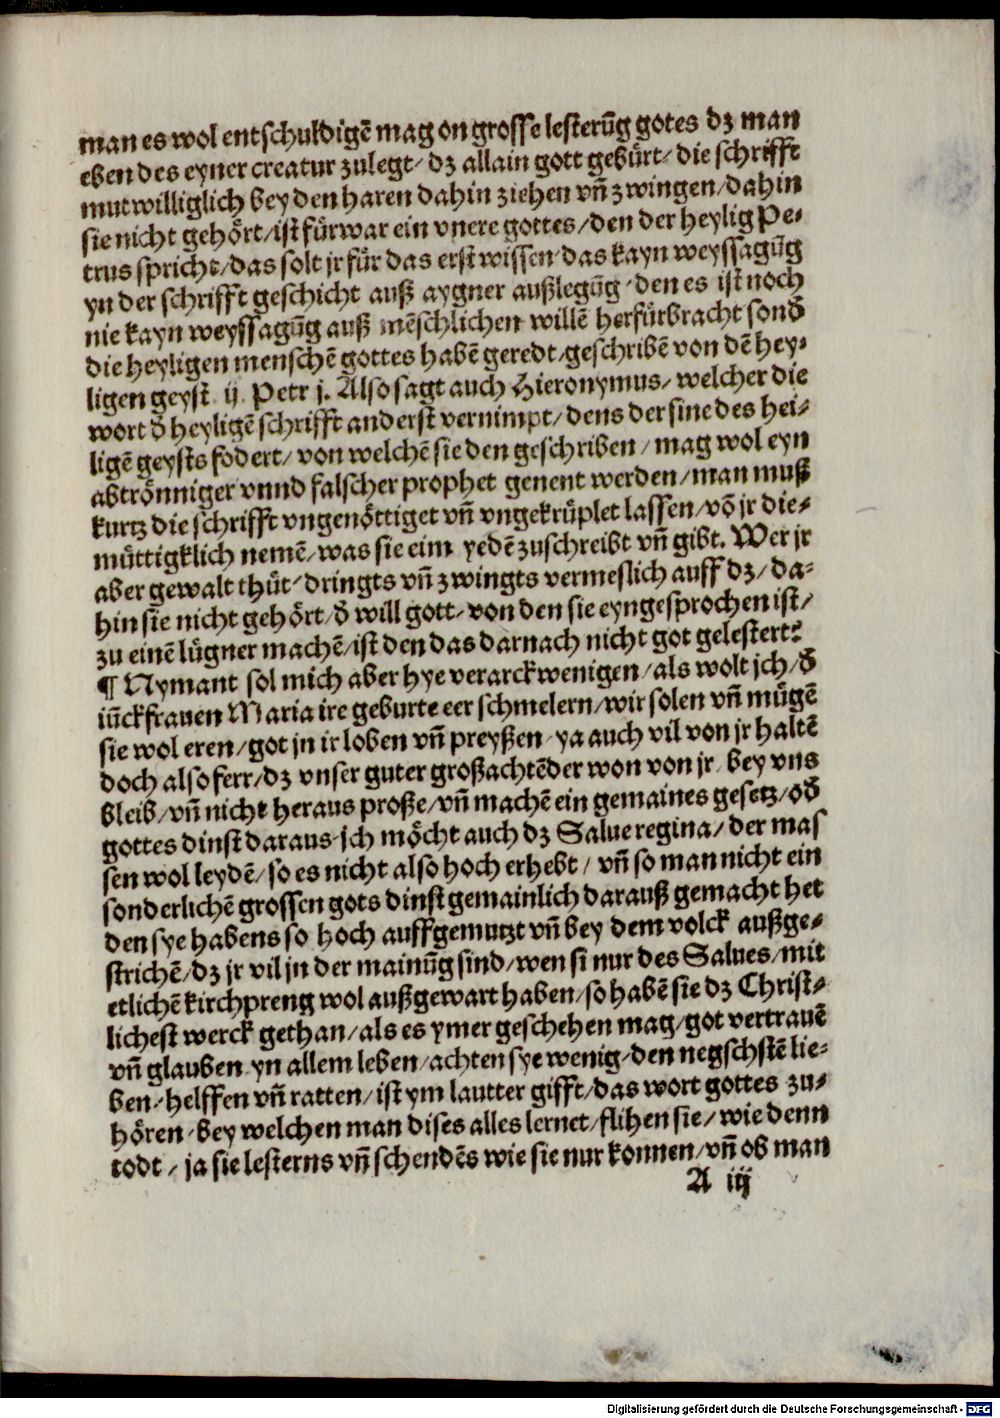 man es wol entschuldigē mag on grosse lesterūg gotes dz man
eben des eyner creatur zulegt / dz allain gott gebürt / die schrifft
mutwilliglich bey den haren dahin ziehen vn̄ zwingen / dahin
sie nicht gehört / ist fürwar ein vnere gottes / den der heylig Pe⸗
trus spricht / das solt jr für das erst wissen das kayn weyssagūg
yn der schrifft geschicht auß aygner außlegūg · den es ist noch
nie kayn weyssagūg auß mēschlichen willē herfürbracht sond̄
die heyligen menschē gottes habē geredt / geschribē von dē hey⸗
ligen geyst ij. Petr j. Also sagt auch Hieronymus / welcher die
wort d̄ heyligē schrifft anderst vernimpt / dens der sine des hei⸗
ligē geysts fodert / von welchē sie den geschriben / mag wol eyn
abtrönniger vnnd falscher prophet genent werden / man muß
kurtz die schrifft vngenöttiget vn̄ vngekrüplet lassen / vō jr die⸗
müttigklich nemē / was sie eim yedē zuschreibt vn̄ gibt. Wer jr
aber gewalt thüt / dringts vn̄ zwingts vermeslich auff dz / da⸗
hin sie nicht gehört / d̄ will gott / von den sie eyngesprochen ist /
zu einē lügner machē / ist den das darnach nicht got gelestert?
¶ Nymant sol mich aber hye verarckwenigen / als wolt jch / d̄
iūckfrauen Maria ire geburte eer schmelern / wir solen vn̄ mügē
sie wol eren / got jn ir loben vn̄ preyßen ya auch vil von jr haltē
doch also ferr / dz vnser guter großachtēder won von jr bey vns
bleib / vn̄ nicht heraus proße / vn̄ machē ein gemaines gesetz / od̄
gottes dinst daraus jch möcht auch dz Salue regina / der mas
sen wol leydē / so es nicht also hoch erhebt / vn̄ so man nicht ein
sonderlichē grossen gots dinst gemainlich darauß gemacht het
den sye habens so hoch auffgemutzt vn̄ bey dem volck außge⸗
strichē / dz jr vil jn der mainūg sind / wen si nur des Salues / mit
etlichē kirchpreng wol außgewart haben / so habē sie dz Christ⸗
lichest werck gethan / als es ymer geschehen mag / got vertrauē
vn̄ glauben yn allem leben / achten sye wenig / den negschstē lie⸗
ben / helffen vn̄ ratten / ist ym lautter gifft / das wort gottes zu⸗
hören / bey welchen man dises alles lernet / flihen sie / wie denn
todt / ja sie lesterns vn̄ schendēs wie sie nur konnen / vn̄ ob man
A iij
Digitalisierung gefördert durch die Deutsche Forschungsgemeinschaft - DFG